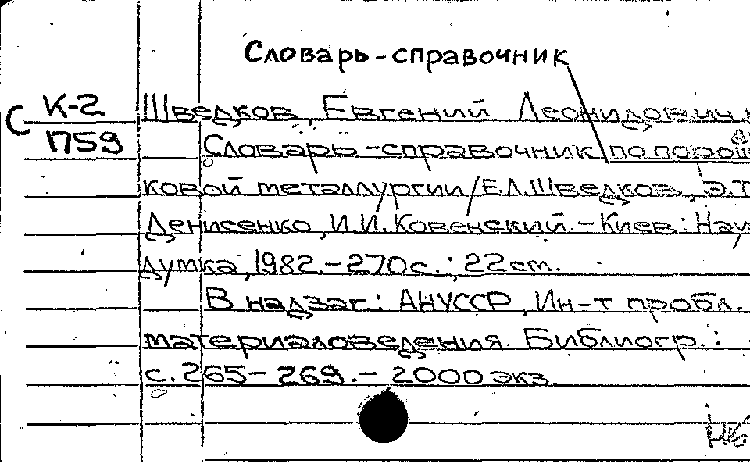 Словарь-справочник
С К-2 Шведков, Евгений Леонидович
П59 Словарь-справочник по порош
ковой металлургии/Е.Л.Шведков, Э.Т.
Денисенко, И.И.Ковенский.-Киев: Нау
думка, 1982.-270с.; 22 см.
В надзаг.: АН УССР, Ин-т пробл.
материаловедения. Библиогр.:
с. 265-269.-2000 экз.